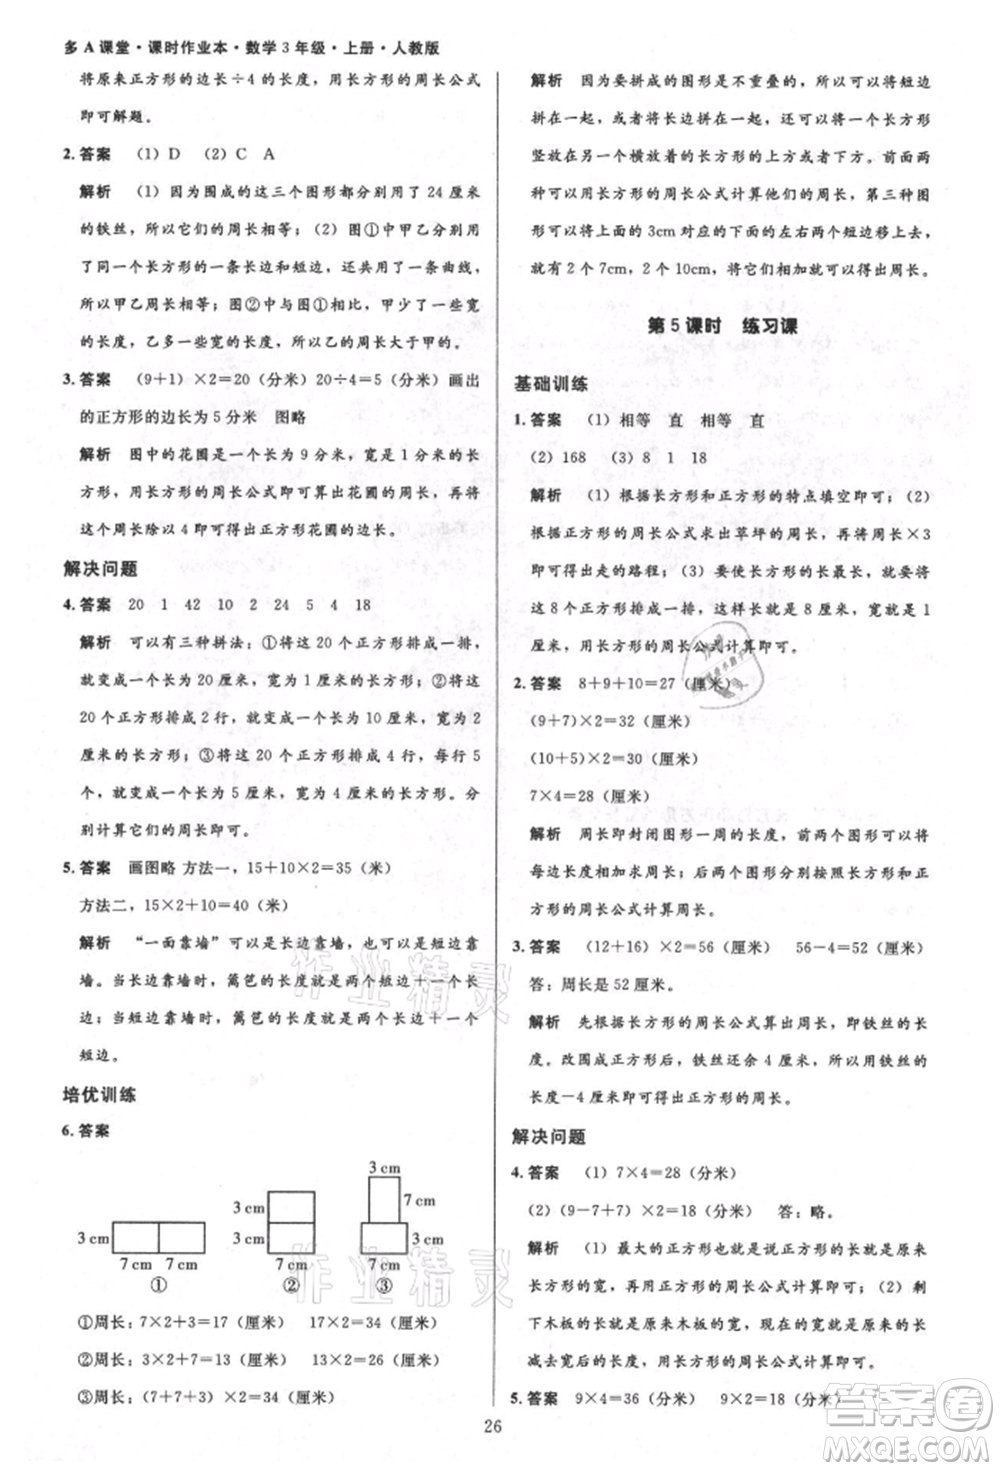 多A课堂·课时作业本·数学3年级·上册·人教版
将原来正方形的边长÷4的长度，用长方形的周长公式
即可解题。
2.答案 （1）D （2）C A
解析 （1）因为围成的这三个图形都用了24厘米
的铁丝，所以它们的周长相等；（2）图①中甲乙分别
用了原来的长方形的一条长边和短边，共用一条曲线，
所以甲乙周长相等；图②中与图①相比，甲少了一些宽
的长度，乙多了一些宽的长度，所以乙的周长大于甲的。
3.答案 （9＋1）×2＝20（分米）20÷4＝5（分米）画出
的正方形的边长为5分米 图略
解析 图中的花圃一个长为9分米，宽为1分米的长
方形，用长方形的周长公式求出这个花圃的周长，再将
这个周长除以4即可得出正方形花圃的边长。
解决问题
4.答案 20 1 42 10 2 24 5 4 18
解析 可以有三种拼法：①将这20个正方形排成一
排，就变成一个长为20厘米，宽为1厘米的长方形；②将这
20个正方形排成2行，就变成一个长为10厘米，宽为
2厘米的长方形；③将这20个正方形排成4行，每行5
个，就变成一个长为5厘米，宽为4厘米的长方形。分
别计算它们的周长即可。
5.答案 画图略 方法一，15＋10×2＝35（米）
方法二，15×2＋10＝40（米）
解析 “一面靠墙”可以是长边靠墙，也可以是短边靠
墙。当长边靠墙时，篱笆的长度就是两个短边＋一个
长边；当短边靠墙时，篱笆的长度就是两个长边＋一个
短边。
培优训练
6.答案
3cm
7cm
3cm
3cm
3cm
7cm 7cm 7cm
① ② ③
①周长：7×2＋3＝17（厘米） 17×2＝34（厘米）
②周长：3×2＋7＝13（厘米） 13×2＝26（厘米）
③周长：（7＋7＋3）×2＝34（厘米）
解析 因为要拼成的图形是不重叠的，所以可以将短边
拼在一起，也可以将长边拼在一起，还可以将一个长方形
竖放在另一个横放着的长方形的长边或短边上。前面两
种可以利用长方形的周长公式计算他们的周长，第三种图
形可以将上面的3cm对应的下面的左右两个短边移上去，
就有2个7cm，2个10cm，将它们相加即可得出周长。
第5课时 练习课
基础训练
1.答案 （1）相等 直 相等 直
（2）168 （3）8 1 18
解析 （1）根据长方形和正方形的特点填空即可；（2）
根据正方形的周长公式求出草坪的周长，再用周长×3
即可得出走的路程；（3）要使长方形的周长最长，应将
这8个正方形拼成一排，这样长就是8厘米，宽就是1
厘米，用长方形的周长公式计算即可。
2.答案 8＋9＋10＝27（厘米）
（9＋7）×2＝32（厘米）
（10＋5）×2＝30（厘米）
7×4＝28（厘米）
解析 周长即封闭图形一周的长度，前两个图形可以
用平移法求出周长；后两个图形是长方形和正方形，应
用长方形和正方形的周长公式计算周长。
3.答案 （12＋16）×2＝56（厘米） 56－4＝52（厘米）
答：周长是52厘米。
解析 先根据长方形的周长公式算出周长，即铁丝的
长度。改围成正方形后，铁丝还余4厘米，所以用铁丝的
长度－4厘米即可得出正方形的周长。
解决问题
4.答案 （1）7×4＝28（分米）
（2）（9－7＋7）×2＝18（分米） 答：略。
解析 （1）最大的正方形的边长就是原来
长方形的宽，再用正方形的周长公式计算即可；（2）剩
下木板的长就是原来木板的宽，宽就是原来的长
减去宽后的长度，用长方形的周长公式计算即可。
5.答案 9×4＝36（分米） 9×2＝18（分米）
26
作业精灵
作业精灵
答案卷
MXQE.COM